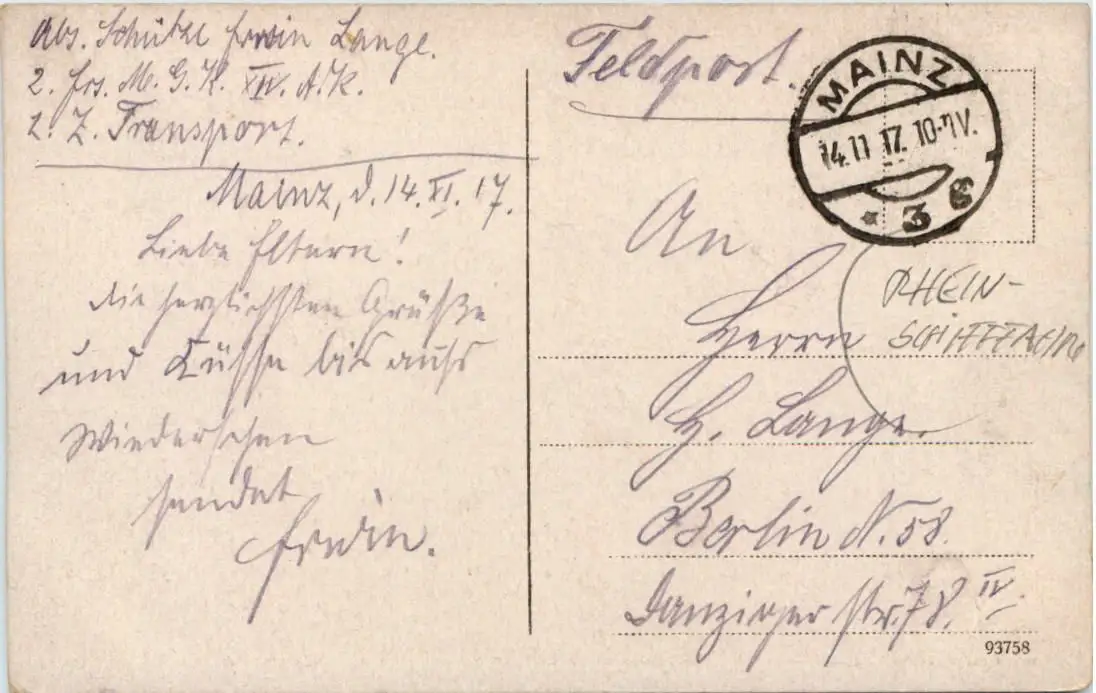 Abs. Schütze Erwin Lange.
2. Ers. M. G. K. XIV. A.K.
2. Z. Transport.
Mainz, d. 14. XI. 17.
Liebe Eltern!
die herzlichsten Grüße
und Küsse bis aufs
Wiedersehen
sendet
Erwin.
Feldpost.
MAINZ
14.11 17. 10-11V.
* 3
An
Herrn
H. Lange.
Berlin N. 58.
Danziger Str. 78. IV
RHEIN-
93758